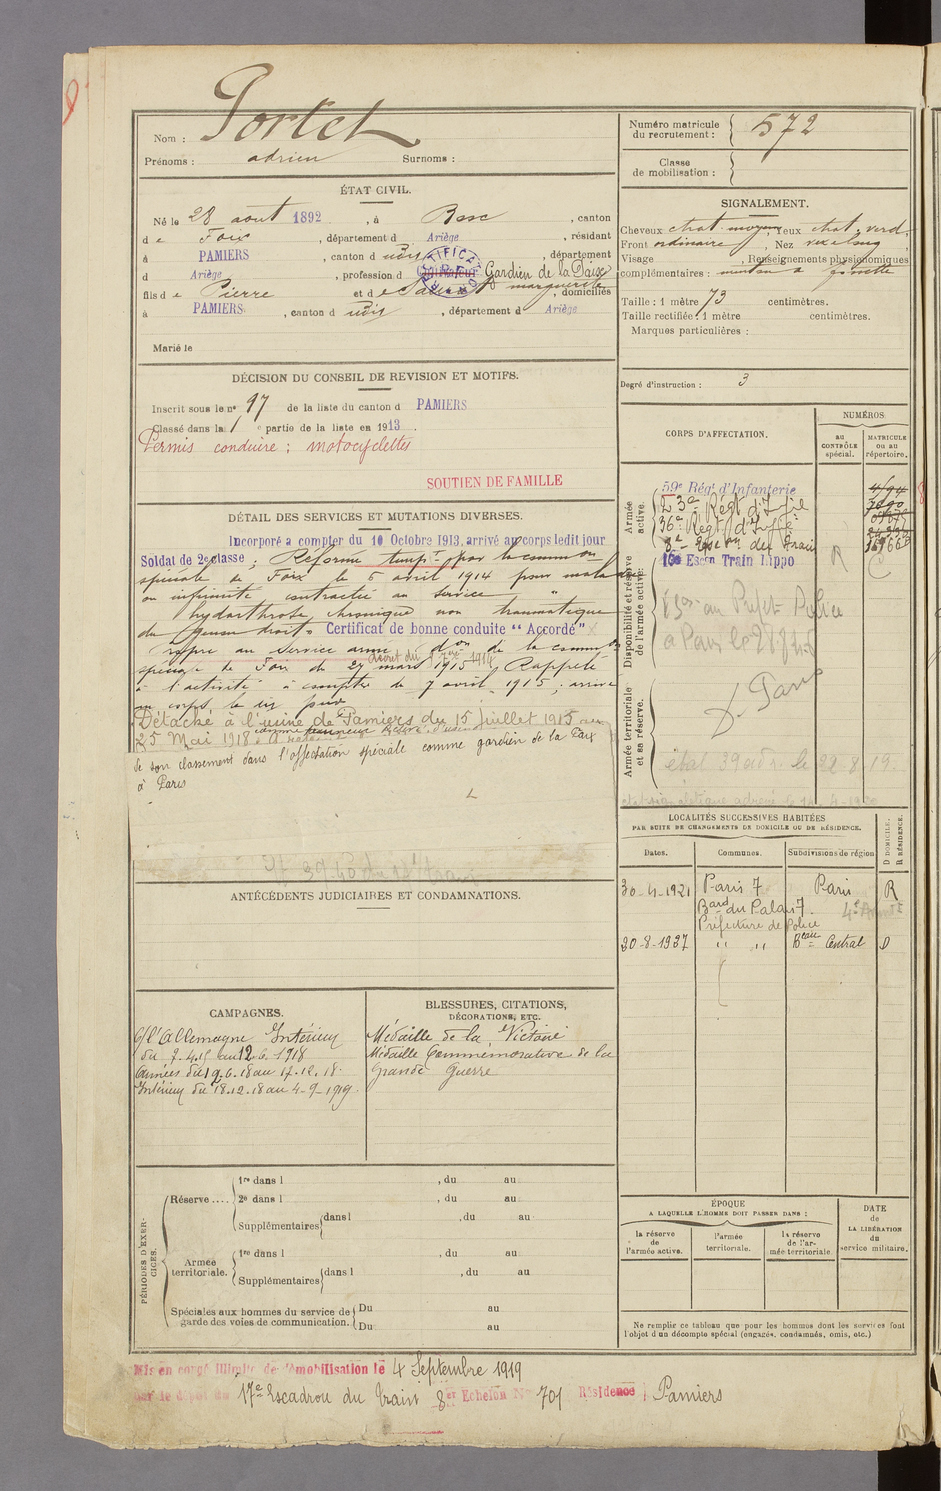 Nom : Portet
Prénoms : adrien Surnoms :
ÉTAT CIVIL.
Né le 28 aout 1892, à canton
de Foix, département d Ariège, résidant
à PAMIERS, canton d udis, département
d Ariège, profession d Gardien de la Paix
fils de Pierre et de marguerite, domiciliés
à PAMIERS, canton d udis, département d Ariège
Marié le
DÉCISION DU CONSEIL DE REVISION ET MOTIFS.
Inscrit sous le n° 97 de la liste du canton d PAMIERS
Classé dans la 1e partie de la liste en 1913.
Permis conduire : motocyclettes
SOUTIEN DE FAMILLE
DÉTAIL DES SERVICES ET MUTATIONS DIVERSES.
Incorporé a compter du 10 Octobre 1913, arrivé au corps ledit jour
Soldat de 2e classe ; Réformé tempre par la common
spéciale de Foix le 5 avril 1914 pour maladie
ou infirmité contractée au service "
hydarthrose chronique non traumatique
du genou droit " Certificat de bonne conduite “ Accordé ”
au Service armé don de la comm
spéciale de Foix du 27 mars 1915. Rappelé
à l'activité à compter du 7 avril 1915 ; arrivé
au corps le dix jour
Détaché à l'usine de Pamiers du 15 juillet 1915 au
25 Mai 1918
de son classement dans l'affectation spéciale comme gardien de la Paix
à Paris
ANTÉCÉDENTS JUDICIAIRES ET CONDAMNATIONS.
CAMPAGNES.
C/ l'Allemagne Intérieur
du 7-4-15 au 12.6.1918
Armées du 19.6.18 au 17.12.18.
Intérieur du 18.12.18 au 4-9-1919.
BLESSURES, CITATIONS,
DÉCORATIONS, ETC.
Médaille de la Victoire
Médaille Commémorative de la
Grande Guerre
PÉRIODES D'EXERCICES.
Réserve ....
1re dans l , du au
2e dans l , du au
Supplémentaires dans l , du au
Armée territoriale.
1re dans l , du au
Supplémentaires dans l , du au
Spéciales aux hommes du service de
garde des voies de communication.
Du au
Du au
Mis en congé illimité de démobilisation le 4 Septembre 1919
par le dépôt du 17e Escadron du train 8er Echelon No 701 Résidence Pamiers
Numéro matricule
du recrutement : 572
Classe
de mobilisation :
SIGNALEMENT.
Cheveux chat. moyen, yeux chat. verd.
Front ordinaire, Nez
Visage , Renseignements physionomiques
complémentaires : menton à
Taille : 1 mètre 73 centimètres.
Taille rectifiée, 1 mètre centimètres.
Marques particulières :
Degré d'instruction : 3
CORPS D'AFFECTATION.
NUMÉROS
AU
CONTRÔLE
spécial.
MATRICULE
ou au
répertoire.
Armée
active.
59e Régt d'Infanterie
23e Régt d'Infie
36e Régt d'Infie
8e Escon du Train
Disponibilité et réserve
de l'armée active.
Escon Train Hippo
au Préfet Police
à Paris le
Armée territoriale
et sa réserve.
Paris
état 39 adr. le 22.8.19.
LOCALITÉS SUCCESSIVES HABITÉES
PAR SUITE DE CHANGEMENTS DE DOMICILE OU DE RÉSIDENCE.
D DOMICILE.
R RÉSIDENCE.
Dates. Communes. Subdivisions de région
30-4-1921 Paris 7 Paris R
Bard du Palais 7.
Préfecture de Police
30-8-1937 " " Beau Central D
ÉPOQUE
A LAQUELLE L'HOMME DOIT PASSER DANS :
la réserve
de
l'armée active.
l'armée
territoriale.
la réserve
de l'armée territoriale.
DATE
de
LA LIBÉRATION
du
service militaire.
Ne remplir ce tableau que pour les hommes dont les services font
l'objet d'un décompte spécial (engagés, condamnés, omis, etc.)